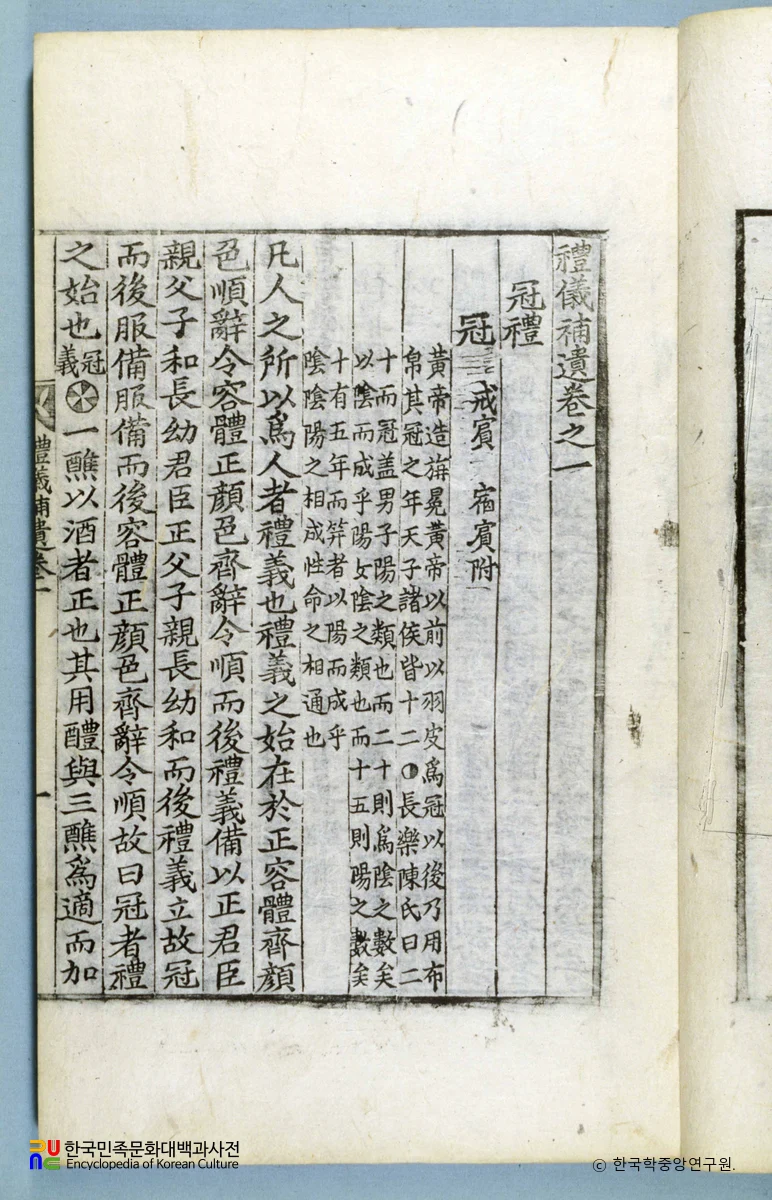 禮儀補遺卷之一
冠禮
冠 戒賓 宿賓附
黃帝造旃冕黃帝以前以羽皮爲冠以後乃用布
帛其冠之年天子諸侯皆十二○長樂陳氏曰二
十而冠盖男子陽之類也而二十則爲陰之數矣
以陰而成乎陽女陰之類也而十五則陽之數矣
十有五年而笄者以陽而成乎
陰陰陽之相成性命之相通也
凡人之所以爲人者禮義也禮義之始在於正容體齊顔
色順辭令容體正顔色齊辭令順而後禮義備以正君臣
親父子和長幼君臣正父子親長幼和而後禮義立故冠
而後服備服備而後容體正顔色齊辭令順故曰冠者禮
之始也冠義 一醮以酒者正也其用醴與三醮爲適而加
禮儀補遺卷一 一
한국민족문화대백과사전
Encyclopedia of Korean Culture
© 한국학중앙연구원.